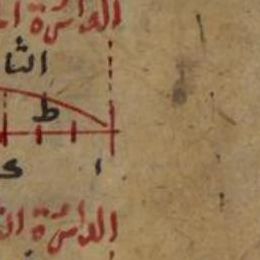 الدائرة ا
الثا
ط
ا
الدائرة ال